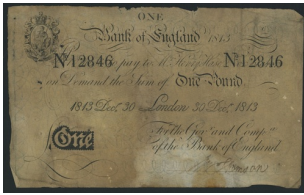 ONE
Bank of England 1813
No 12846 pay to Mr Henry Hase No 12846
on Demand the Sum of One Pound
1813 Decr 30 London 30 Decr 1813
For the Govr and Compa
One
of the Bank of England